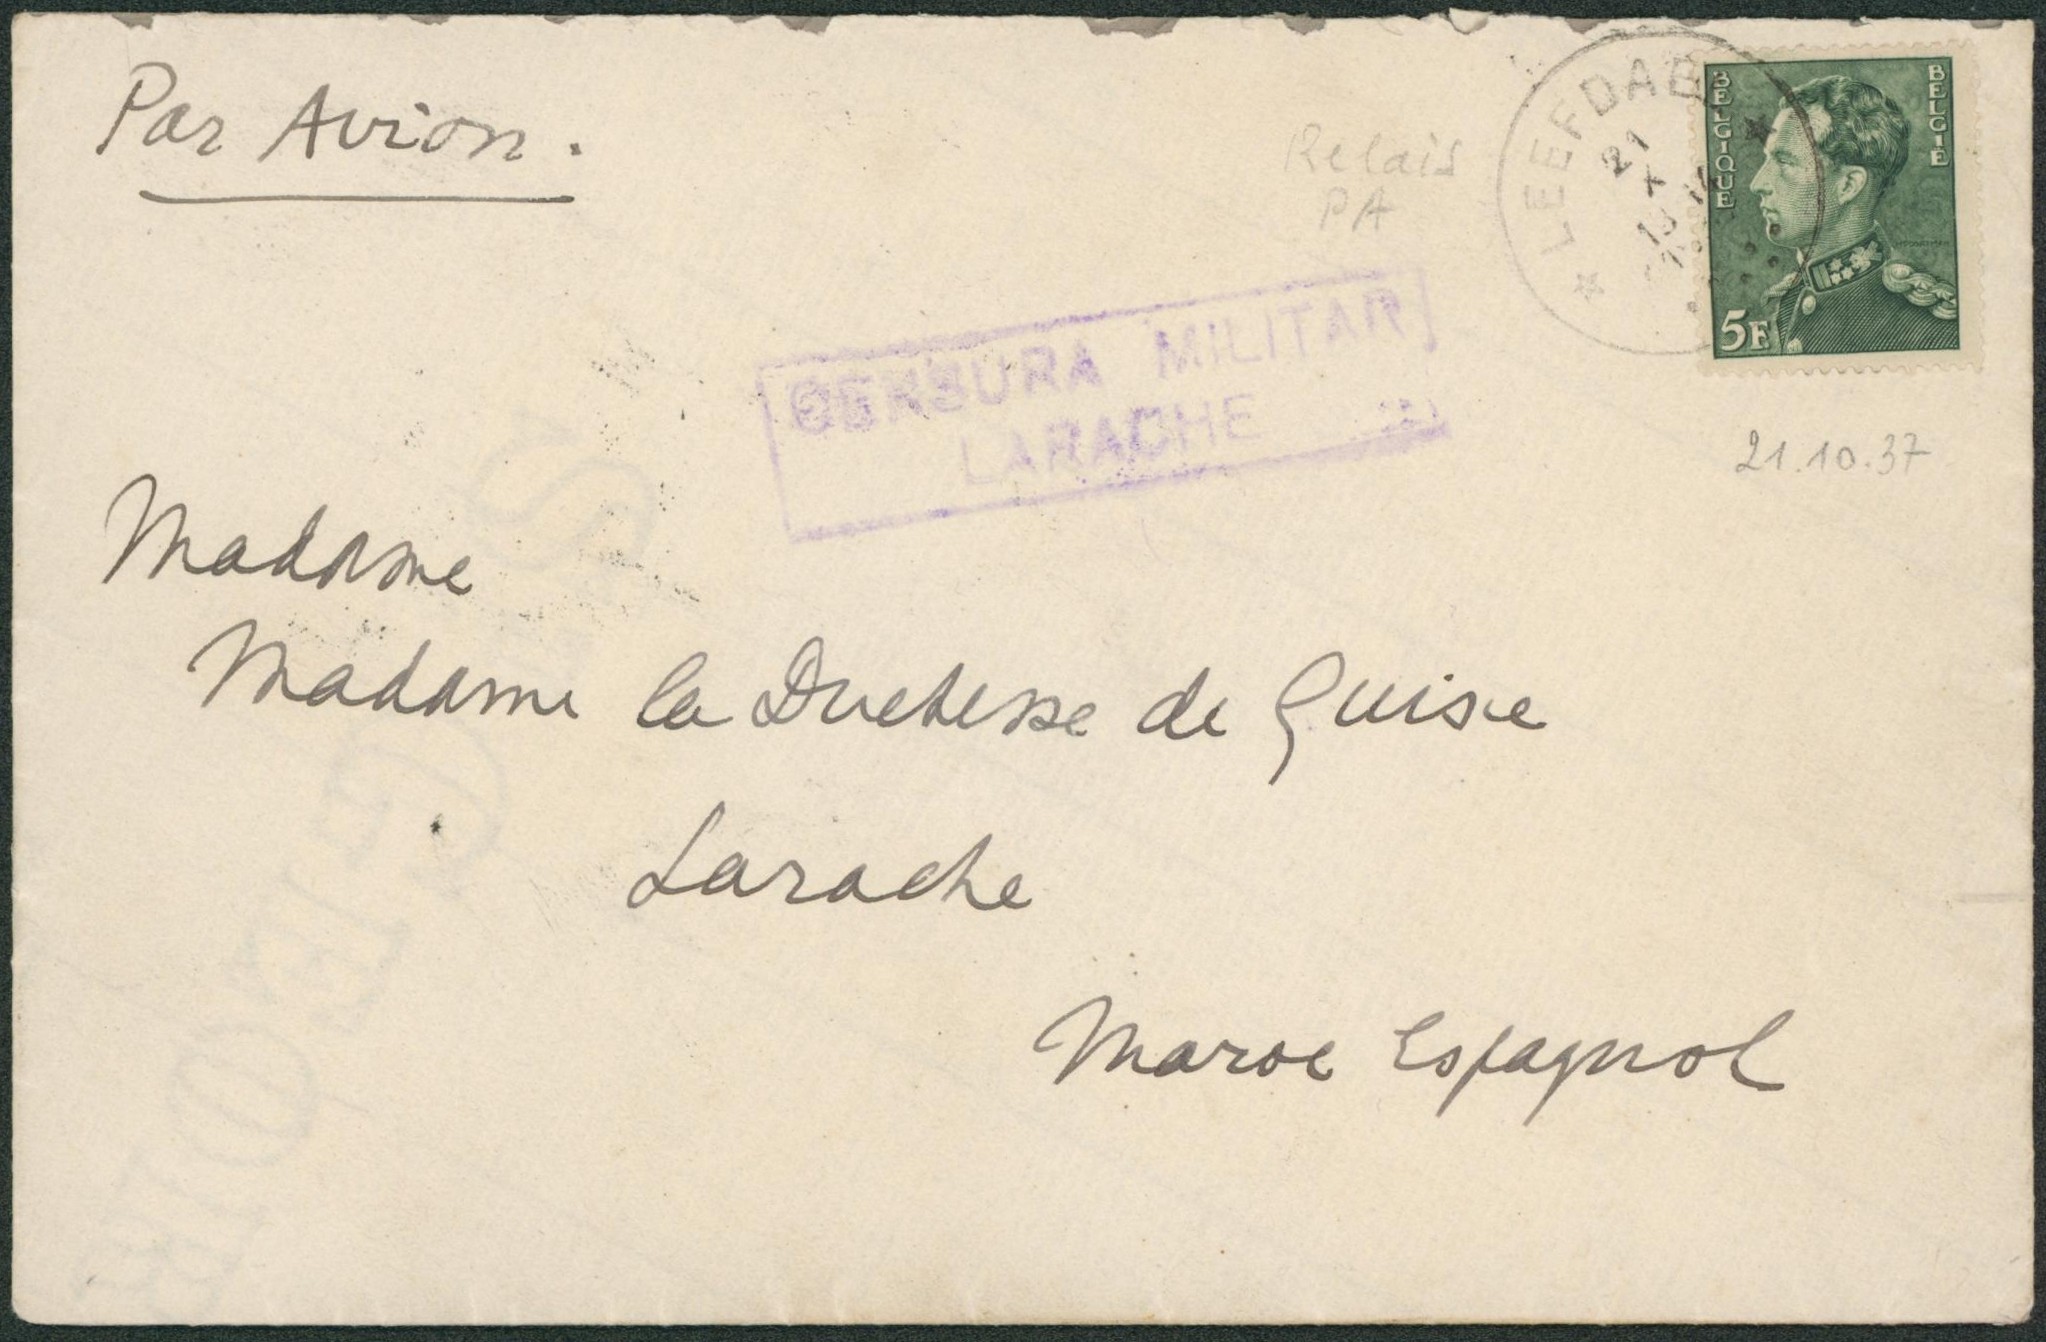 Par Avion.
Relais
PA
LEEFDAE
21
X
BELGIQUE
BELGIË
5F
CENSURA MILITAR
LARACHE
21.10.37
Madame
Madame la Duchesse de Guise
Larache
Maroc Espagnol